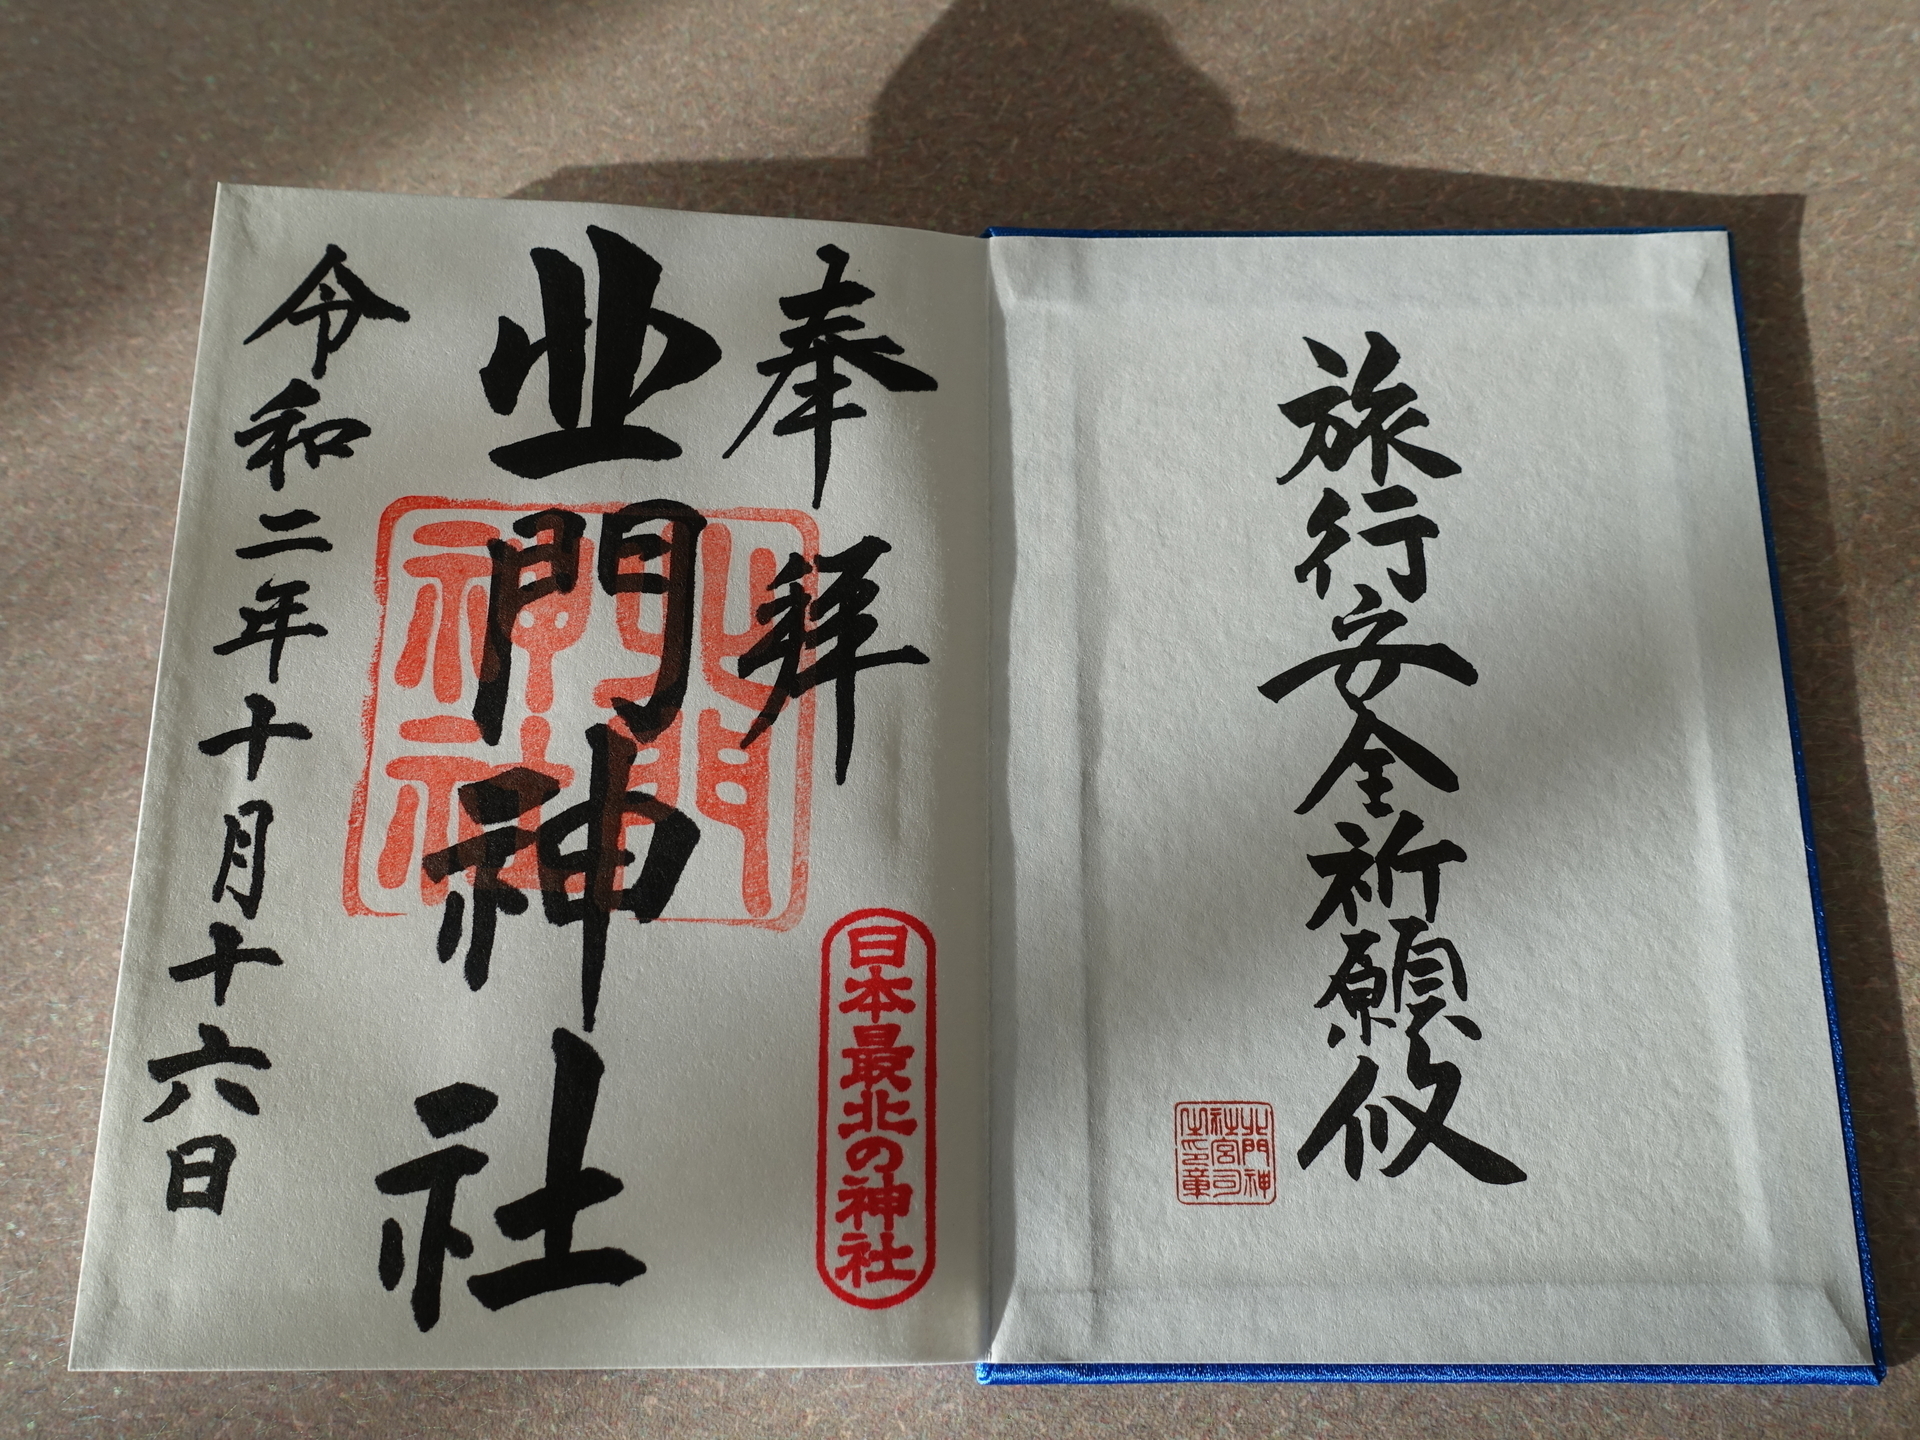 旅行安全祈願攸
北門神
社宮司
之印章
奉拝
日本最北の神社
北門神社
北門
神社
令和二年十月十六日